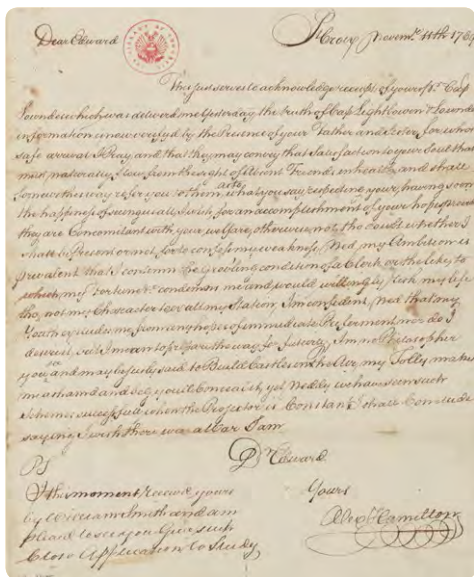 St Croix Novemr. 11th 1769
Dear Edward
This just serves to acknowledge receipt of yours pr. Capt
Lowndes which was delivered me Yesterday, the truth of Capt Lightbowen & Lowndes
information is now verifyd by the Presence of your Father and Sister for whose
safe arrival I Pray, and that they may convey that Satisfaction to your Soul that
must naturally flow from the sight of Absent Friends in health, and shall
for news this way refer you to them, as to what you say respecting your having soon
the happiness of seeing us all, I wish, for an accomplishment of your hopes provided
they are Concomitant with your welfare, otherwise not, tho doubt whether I
shall be Present or not, for to confess my weakness, Ned, my Ambition is
prevalent that I contemn the grov'ling condition of a Clerk or the like, to
which my Fortune &c. condemns me and would willingly risk my life
tho' not my Character to exalt my Station, Im confident, Ned that my
Youth excludes me from any hopes of immediate Preferment nor do I
desire it, but I mean to prepare the way for futurity, Im no Philosopher
you see and may be jusly said to Build Castles in the Air, my Folly makes
me ashamd and beg youll Conceal it, yet Neddy we have seen such
Schemes successfull when the Projector is Constant I shall Conclude
saying I wish there was a War I am
Dr Edward
Yours
Alexr Hamilton
PS
I this moment receivd yours
by William Smith and am
pleasd to see you Give such
Close Application to Study